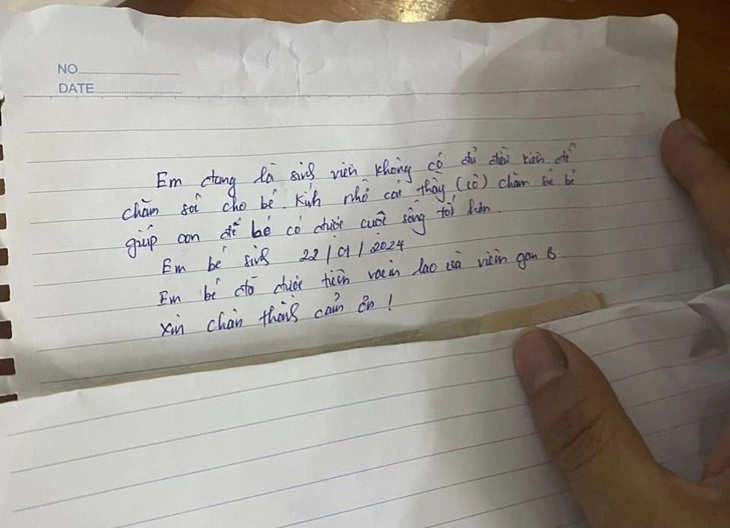 NO
DATE
Em đang là sinh viên không có đủ điều kiện để
chăm sóc cho bé. Kính nhờ các thầy (cô) chăm sóc bé
giúp con để bé có được cuộc sống tốt hơn.
Em bé sinh 22/01/2024
Em bé đã được tiêm vacin lao và viên gan B
Xin chân thành cảm ơn!